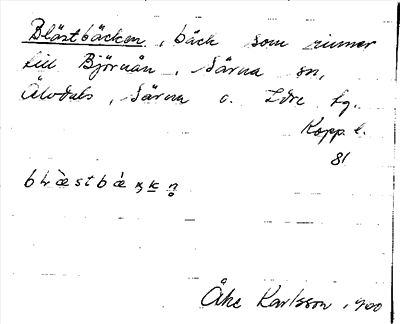 Blästbäcken, bäck som rinner
till Björnån, Särna sn,
Älvdals, Särna o. Idre tg.
Kopp. l.
81
Åke Karlsson, 1900